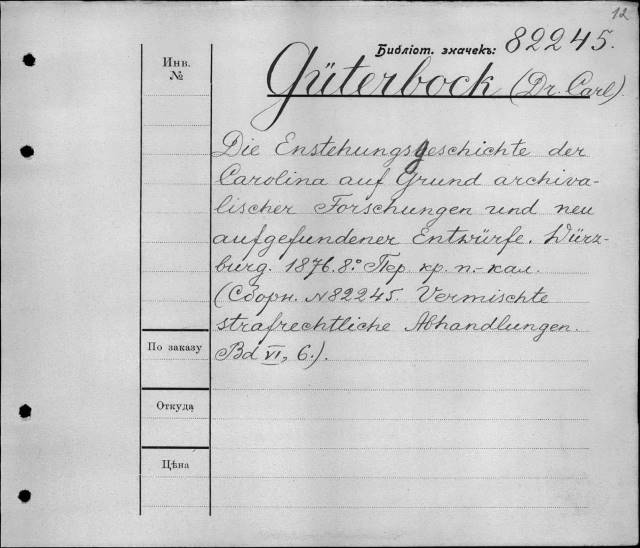 12
Библіот. значекъ: 82245.
Инв.
№
Güterbock (Dr. Carl).
Die Enstehungsgeschichte der
Carolina auf Grund archiva-
lischer Forschungen und neu
aufgefundener Entwürfe. Würz-
burg. 1876. 8.° Пер. кр. п.-кал.
(Сборн. №82245. Vermischte
strafrechtliche Abhandlungen.
Bd VI, 6.).
По заказу
Откуда
Цѣна